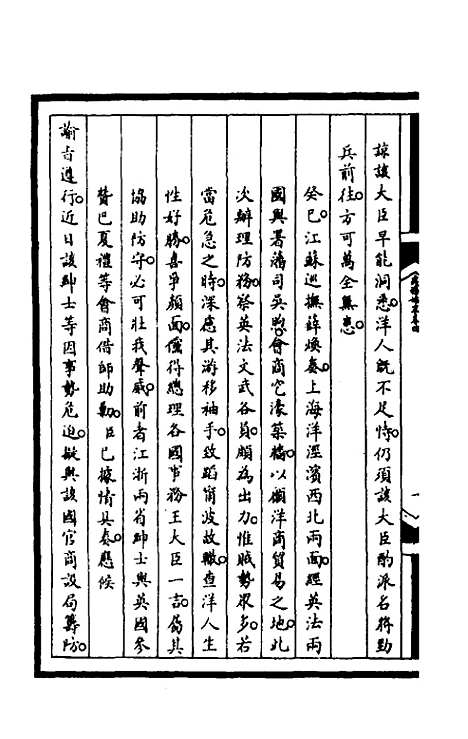 諒該大臣早能洞悉。洋人旣不足恃。仍須該大臣酌派名將勁
兵前往。方可萬全無患。
癸巳。江蘇巡撫薛煥奏。上海洋涇濱西北兩面。經英法兩
國與署藩司吳煦。會商挖濠築牆。以顧洋商貿易之地。此
次辦理防務。察英法文武各員。頗為出力。惟賊勢衆多。若
當危急之時。深慮其游移袖手。致蹈甯波故轍。查洋人生
性好勝。喜爭顏面。儻得總理各國事務王大臣一言。屬其
協助防守。必可壯我聲威。前者江浙兩省紳士與英國參
贊巴夏禮等會商借師助勦。臣已據情具奏。懸候
諭旨遵行。近日該紳士等因事勢危迫。欲與該國官商設局籌防。